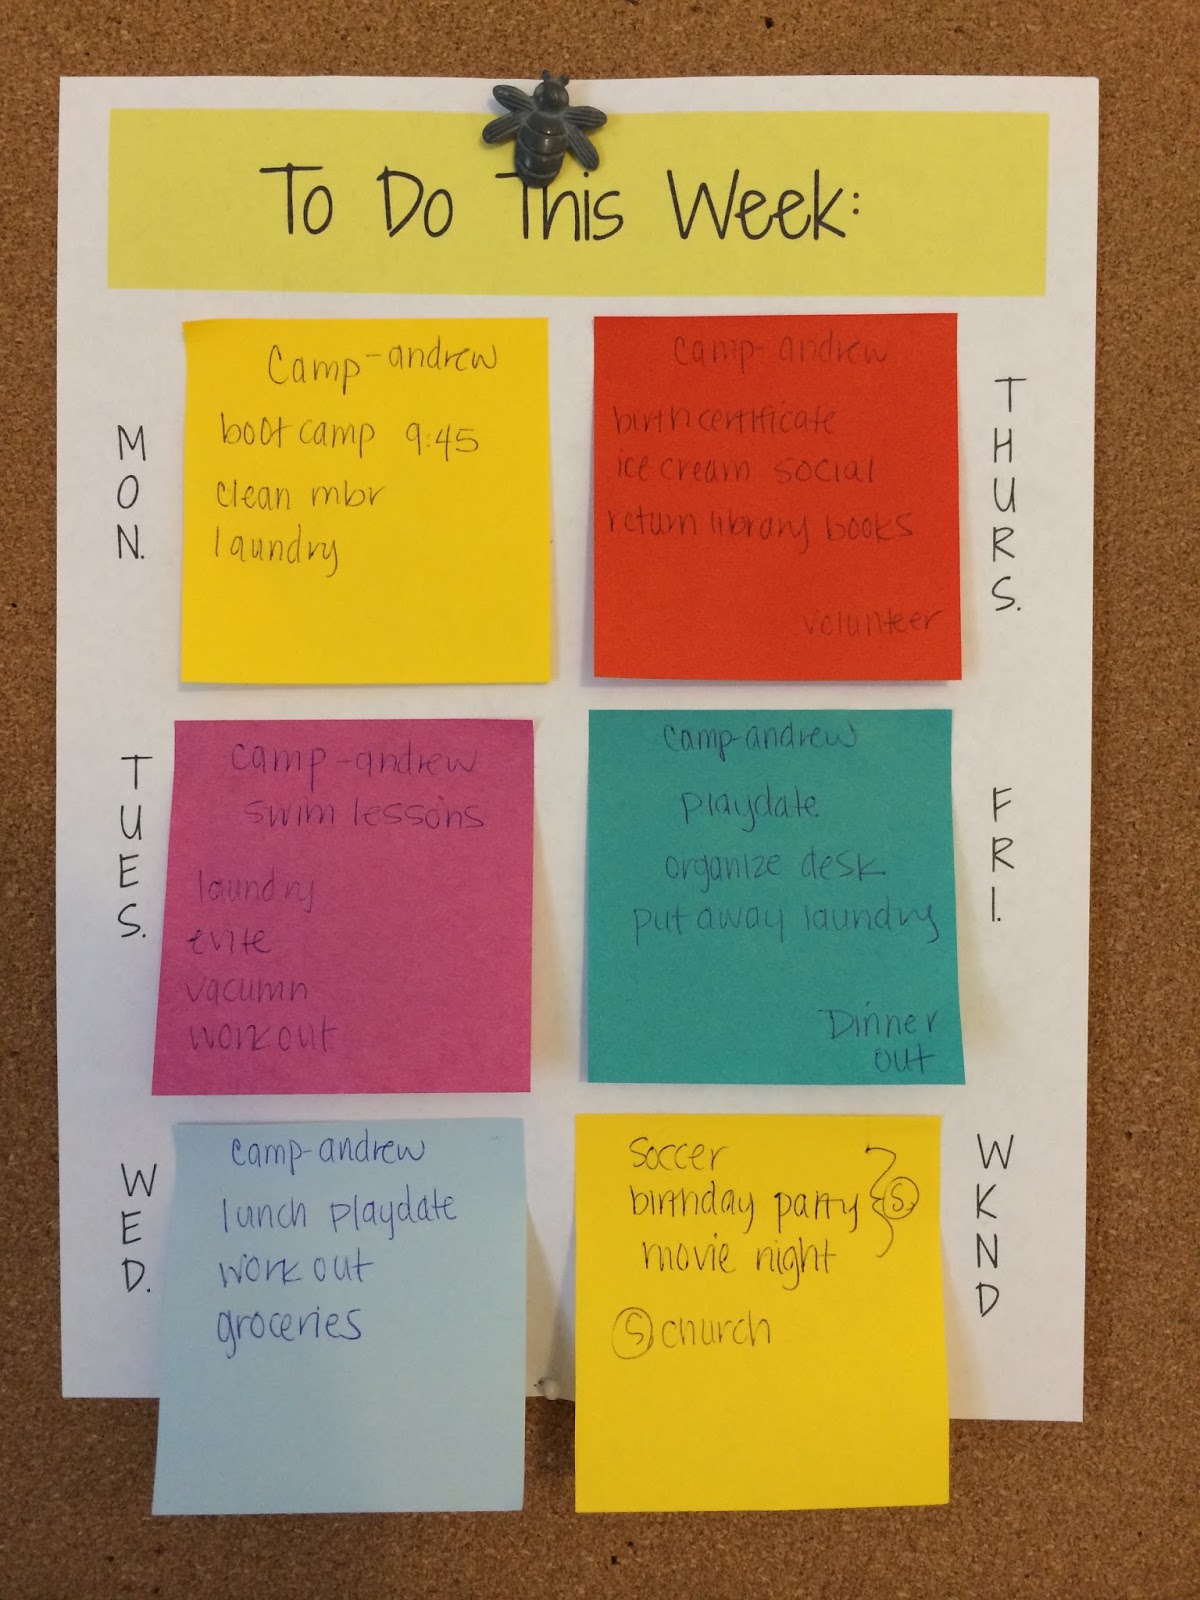 To Do This Week:
MON.
camp-andrew
bootcamp 9:45
clean mbr
laundry
TUES.
camp-andrew
swim lessons
laundry
evite
vacumn
workout
WED.
camp-andrew
lunch playdate
work out
groceries
THURS.
camp-andrew
birth certificate
ice cream social
return library books
volunteer
FRI.
camp-andrew
playdate
organize desk
put away laundry
Dinner
out
WKND
soccer
birthday party S
movie night
S church